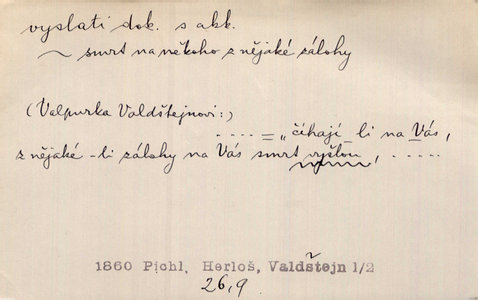 vyslati dok. s akk.
~ smrt na někoho z nějaké zálohy
(Valpurka Valdštejnovi:)
.... = „číhají li na Vás,
z nějaké-li zálohy na Vás smrt vyšlou, .....
1860 Pichl, Herloš, Valdštejn 1/2
26,9